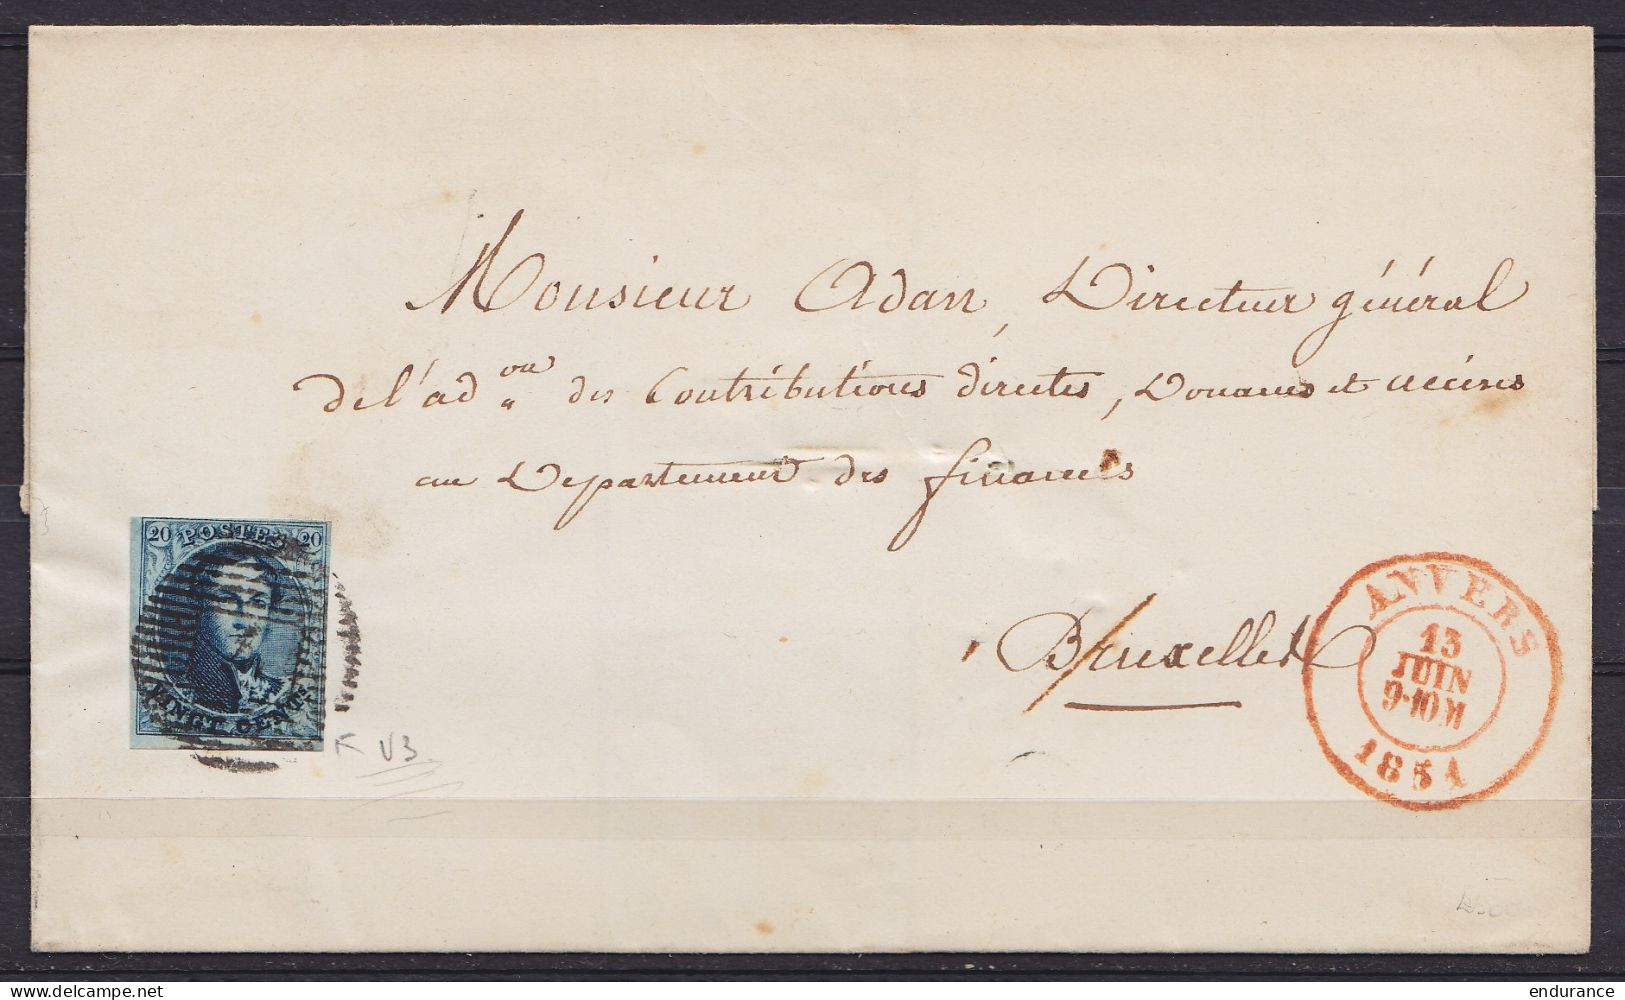 Monsieur Adan, Directeur général
de l'ad.on des Contributions directes, Douanes et accises
au Département des finances
20 POSTES 20
VINGT CENTS
V3
Bruxelles
ANVERS
13
JUIN
9-10M
1851
www.delcampe.net
endurance